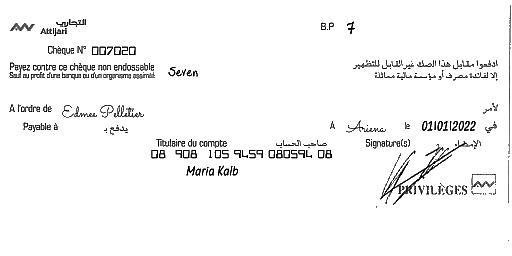 التجاري
Attijari
B.P 7
Chèque N° 007020
Payez contre ce chèque non endossable
Sauf au profit d'une banque ou d'un organisme assimilé
Seven
ادفعوا مقابل هذا الصك غير القابل للتظهير
إلا لفائدة مصرف أو مؤسسة مالية مماثلة
A l'ordre de Edmee Pelletier
لأمر
Payable à يدفع بـ
A Ariena le 01/01/2022 في
Titulaire du compte صاحب الحساب
Signature(s) الإمضاء
08 908 105 9459 080594 08
Maria Kalb
PRIVILÈGES